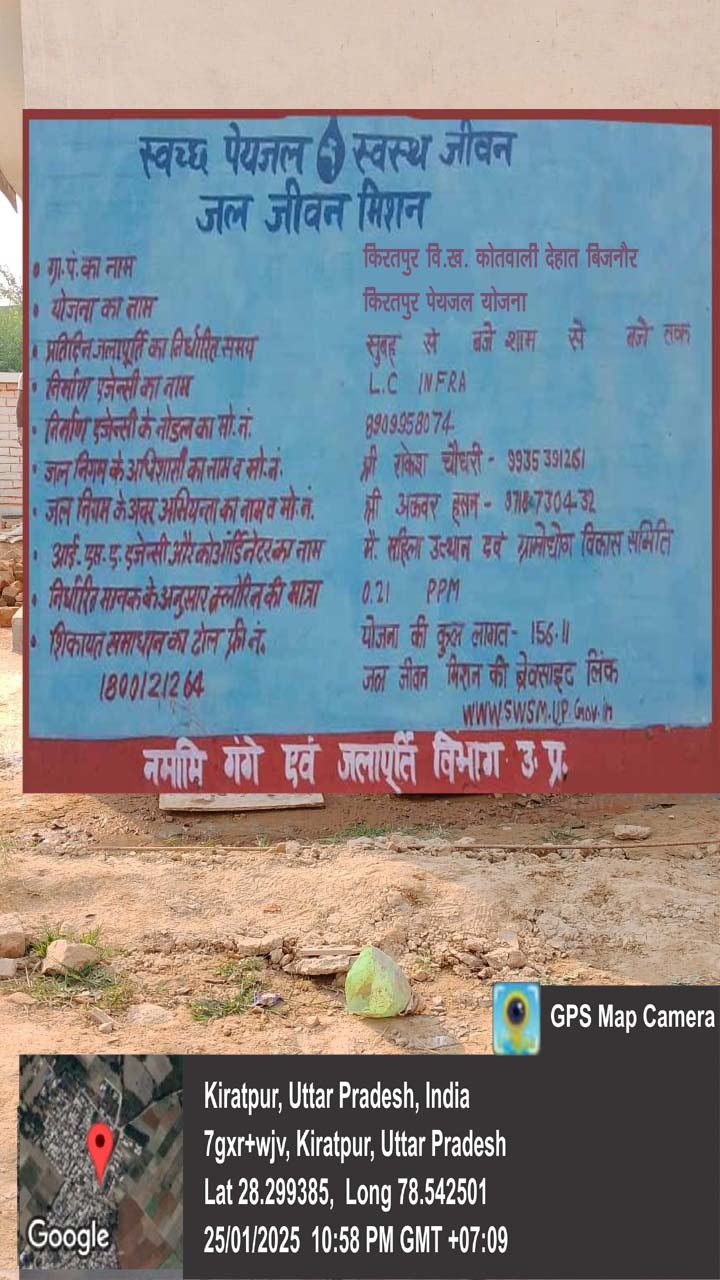 स्वच्छ पेयजल स्वस्थ जीवन
जल जीवन मिशन
• ग्रा.पं. का नाम किरतपुर वि.ख. कोतवाली देहात बिजनौर
• योजना का नाम किरतपुर पेयजल योजना
• प्रतिदिन जलापूर्ति का निर्धारित समय सुबह से बजे शाम से बजे तक
• निर्माण एजेन्सी का नाम L.C INFRA
• निर्माण एजेन्सी के नोडल का मो. नं. 8909958074
• जल निगम के अधिशासी का नाम व मो. नं. श्री राकेश चौधरी - 9935391261
• जल निगम के अवर अभियन्ता का नाम व मो. नं. श्री अकवर हसन - 9718-7304-32
• आई. एस. ए. एजेन्सी और कोऑर्डिनेटर का नाम मै. महिला उत्थान एवं ग्रामोद्योग विकास समिति
• निर्धारित मानक के अनुसार क्लोरिन की मात्रा 0.21 PPM
• शिकायत समाधान का टोल फ्री नं. योजना की कुल लागत - 156.11
1800121264 जल जीवन मिशन की बेवसाइट लिंक
WWW.SWSM.UP.Gov.in
नमामि गंगे एवं जलापूर्ति विभाग उ. प्र.
GPS Map Camera
Kiratpur, Uttar Pradesh, India
7gxr+wjv, Kiratpur, Uttar Pradesh
Lat 28.299385, Long 78.542501
25/01/2025 10:58 PM GMT +07:09
Google